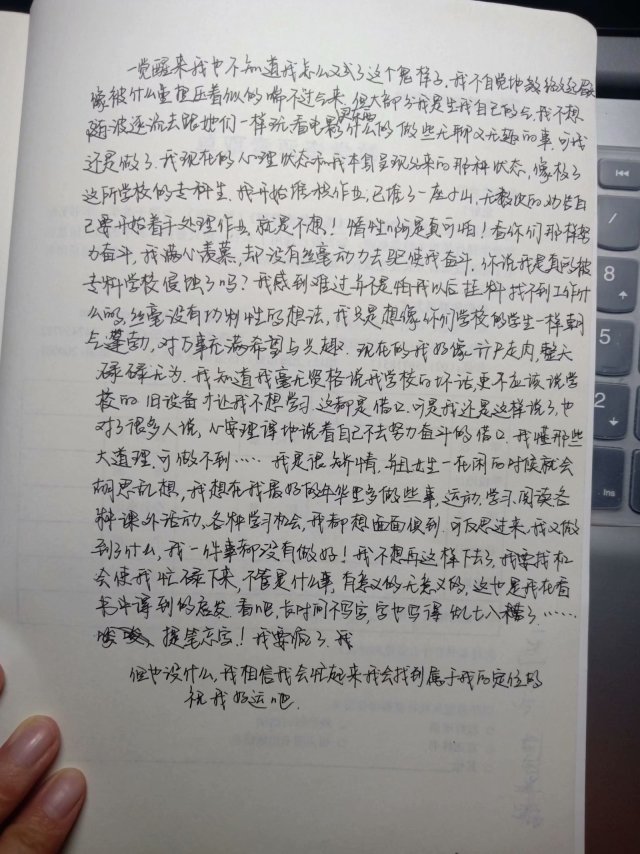 一觉醒来我也不知道我怎么又成了这个鬼样子.我不自觉地
像被什么重担压着似的喘不过气来.但大部分我是生我自己的气.我不想
随波逐流去跟她们一样玩.看电影什么的做些无聊又无趣的事.可我
还是做了.我现在的心理状态和我本身呈现出来的那种状态,像极了
这所学校的专科生.我开始堆积作业;已堆了一座小山,无数次的劝告自
己要开始着手处理作业,就是不想！惰性啊是真可怕！看你们那样努
力奋斗,我满心羡慕,却没有丝毫动力去驱使我奋斗.你说我是真的被
专科学校侵蚀了吗？我感到难过并不是怕我以后挂科找不到工作什
么的.丝毫没有功利性的想法,我只是想像你们学校的学生一样朝
气蓬勃,对万事充满希望与兴趣.现在的我好像行尸走肉,整天
碌碌无为.我知道我毫无资格说我学校的坏话,更不应该说学
校的旧设备才让我不想学习.这都是借口.可是我还是这样说了,也
对了很多人说,心安理得地说着自己不去努力奋斗的借口.我懂那些
大道理.可做不到……我是很矫情.并且女生一在闲的时候就会
胡思乱想,我想在我最好的年华里多做些事,运动.学习.阅读各
种课外活动,各种学习机会,我都想面面俱到.可反思过来,我又做
到了什么,我一件事都没有做好！我不想再这样下去了,我要找机
会使我忙碌下来,不管是什么事,有意义的无意义的,这也是我在看
书斗得到的启发.看吧,长时间不写字,字也写得乱七八糟了……
唉,提笔忘字！我要疯了.我
但也没什么,我相信我会忙起来我会找到属于我的定位的
祝我好运吧.
Ins